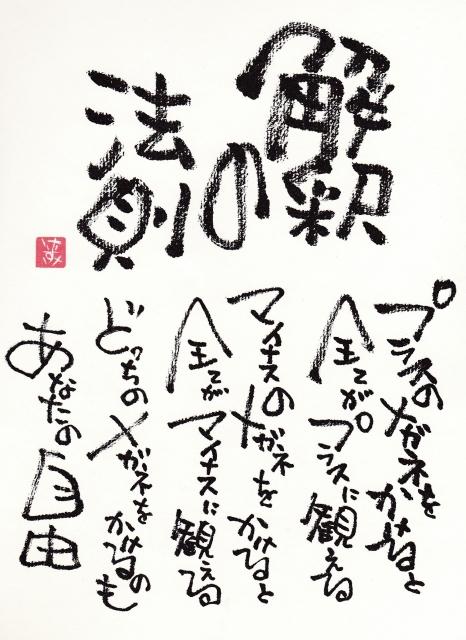 解釈
の
法則
プラスのメガネをかけると
全てがプラスに観える
マイナスのメガネをかけると
全てがマイナスに観える
どっちのメガネをかけるのも
あなたの自由